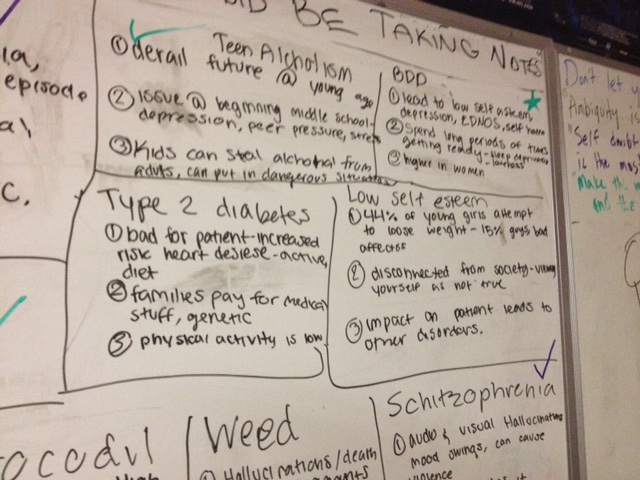 BE TAKING NOTES
ia,
episode
al
c.
Teen Alcholism
① derail future @ young age
② issue @ beginning middle school-
depression, peer pressure, stress
③ Kids can stal alchohal from
aduts, can put in dangerous
BDD
① lead to low self esteem,
depression, EDNOS, self harm
② Spend long periods of time
getting ready-
③ higher in women
Type 2 diabetes
① bad for patient-increased
risk heart desiese-active,
diet
② families pay for medical
stuff, genetic
③ physical activity is low
Low self esteem
① 44% of young girls attempt
to loose weight - 15% guys
affectes
② disconnected from society-
yourself as not true
③ impact on patient leads to
other disordars.
Weed
① Hallucinations/death
Schitzophrenia
① audio & visual Hallucinations
mood swings, can cause
violence
Don't let
Ambiguity is
"Self doubt
is the mos
"make the
and the